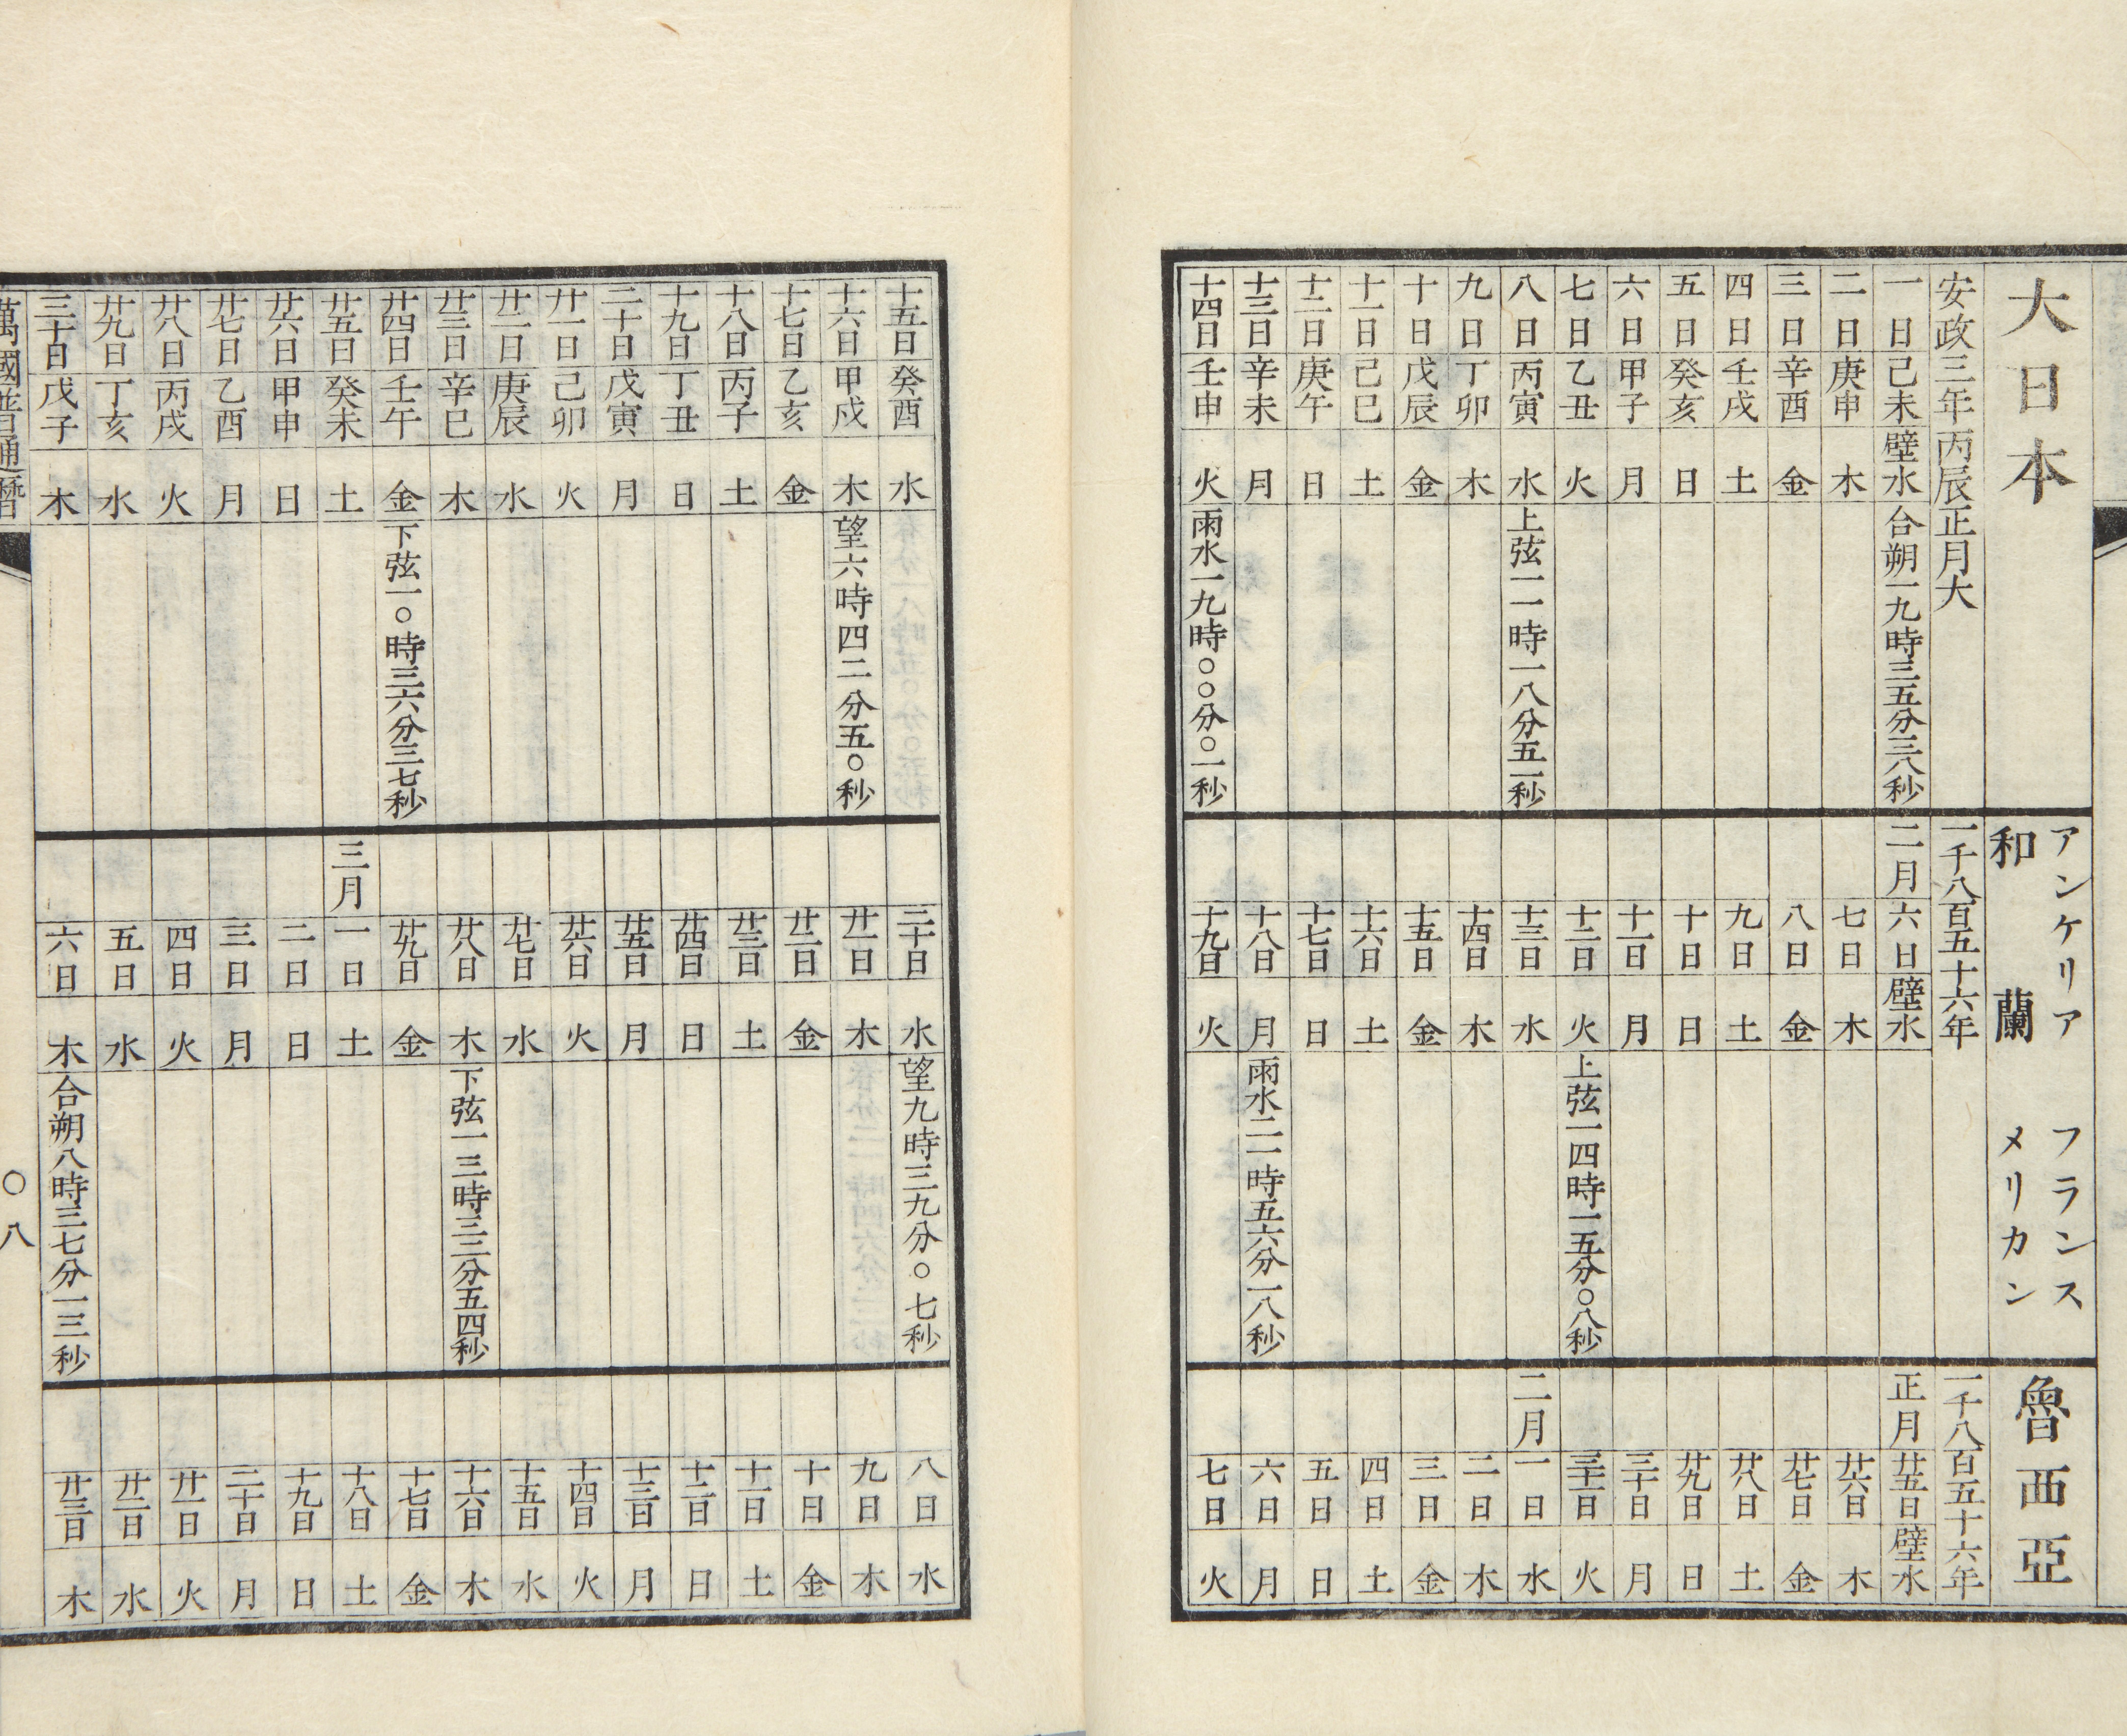 大日本
アンケリア フランス
和蘭 メリカン
魯西亞
安政三年丙辰正月大 一千八百五十六年 一千八百五十六年
一日 己未 壁水 合朔一九時三五分三八秒 二月 六日 壁水 正月 廿五日 壁水
二日 庚申 木 七日 木 廿六日 木
三日 辛酉 金 八日 金 廿七日 金
四日 壬戌 土 九日 土 廿八日 土
五日 癸亥 日 十日 日 廿九日 日
六日 甲子 月 十一日 月 三十日 月
七日 乙丑 火 十二日 火 上弦一四時一五分〇八秒 三十一日 火
八日 丙寅 水 上弦一一時一八分五一秒 十三日 水 二月 一日 水
九日 丁卯 木 十四日 木 二日 木
十日 戊辰 金 十五日 金 三日 金
十一日 己巳 土 十六日 土 四日 土
十二日 庚午 日 十七日 日 五日 日
十三日 辛未 月 十八日 月 雨水二一時五六分一八秒 六日 月
十四日 壬申 火 雨水一九時〇〇分〇一秒 十九日 火 七日 火
十五日 癸酉 水 二十日 水 望九時三九分〇七秒 八日 水
十六日 甲戌 木 望六時四二分五〇秒 廿一日 木 九日 木
十七日 乙亥 金 廿二日 金 十日 金
十八日 丙子 土 廿三日 土 十一日 土
十九日 丁丑 日 廿四日 日 十二日 日
二十日 戊寅 月 廿五日 月 十三日 月
廿一日 己卯 火 廿六日 火 十四日 火
廿二日 庚辰 水 廿七日 水 十五日 水
廿三日 辛巳 木 廿八日 木 下弦一三時三二分五四秒 十六日 木
廿四日 壬午 金 下弦一〇時三六分三七秒 廿九日 金 十七日 金
廿五日 癸未 土 三月 一日 土 十八日 土
廿六日 甲申 日 二日 日 十九日 日
廿七日 乙酉 月 三日 月 二十日 月
廿八日 丙戌 火 四日 火 廿一日 火
廿九日 丁亥 水 五日 水 廿二日 水
三十日 戊子 木 六日 木 合朔八時三七分一三秒 廿三日 木
萬國普通暦 〇八